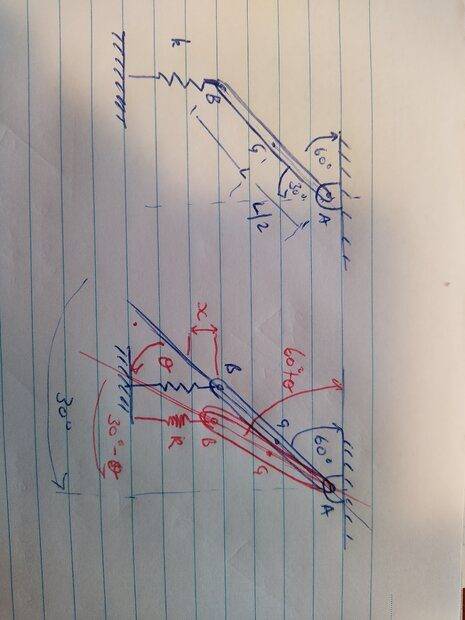 60°
A
30°
G
L/2
L
B
k
60°
A
60°+θ
G
G
B
B
x
θ
k
30°-θ
30°